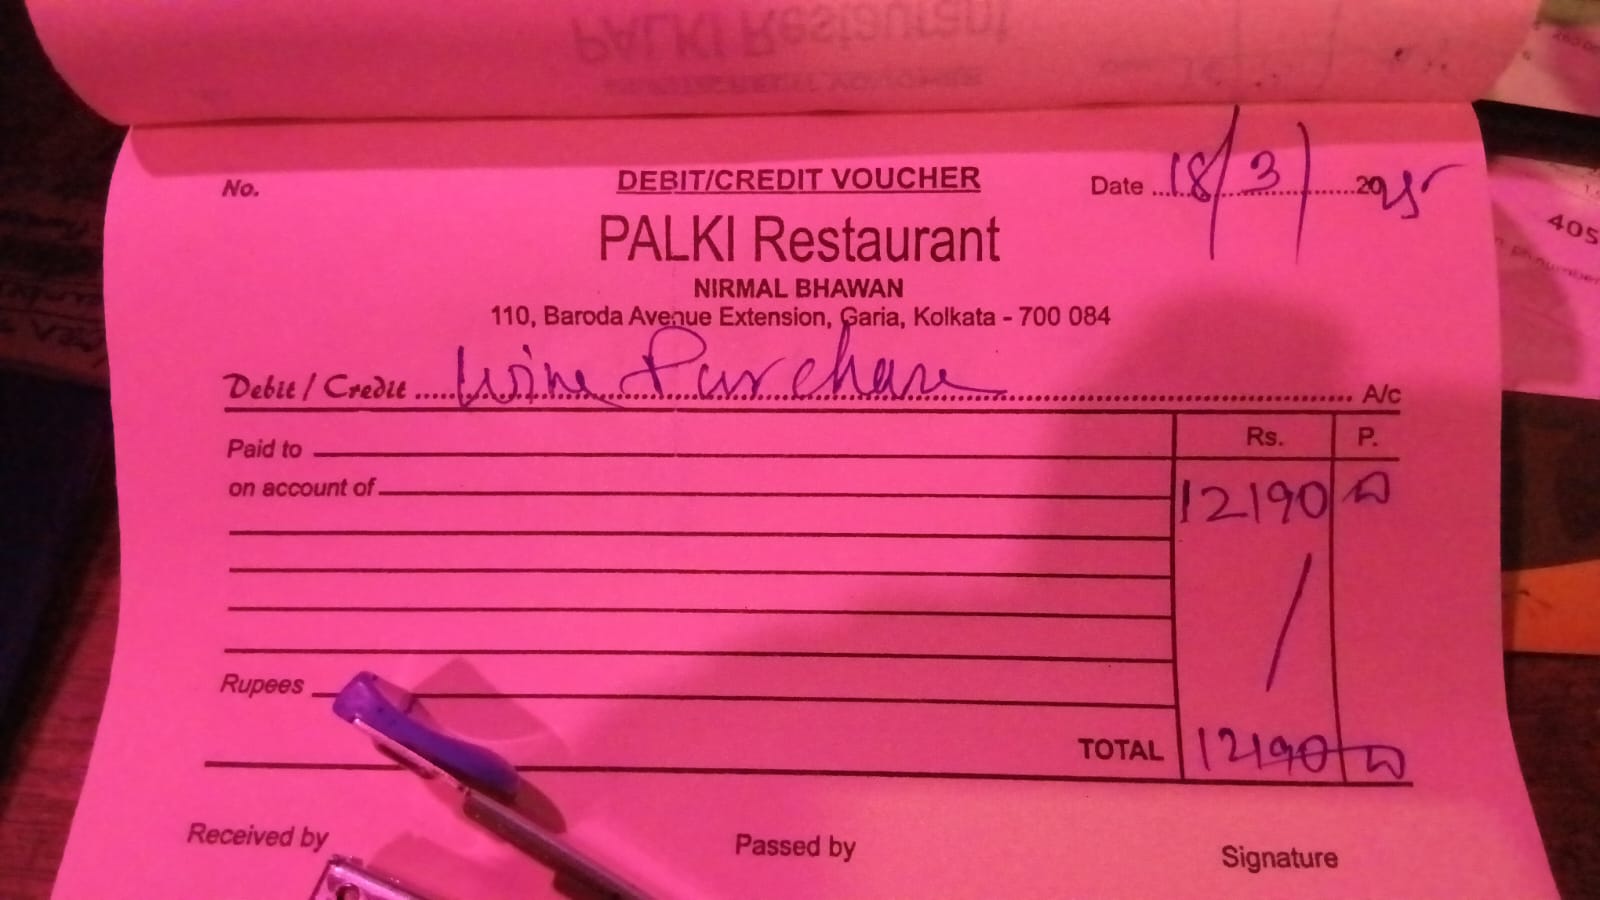 No.
DEBIT/CREDIT VOUCHER
Date 18/3/2025
PALKI Restaurant
NIRMAL BHAWAN
110, Baroda Avenue Extension, Garia, Kolkata - 700 084
Debit / Credit Wine Purchase A/c
Rs. P.
Paid to
on account of
12190
Rupees
TOTAL 12190
Received by
Passed by
Signature
405